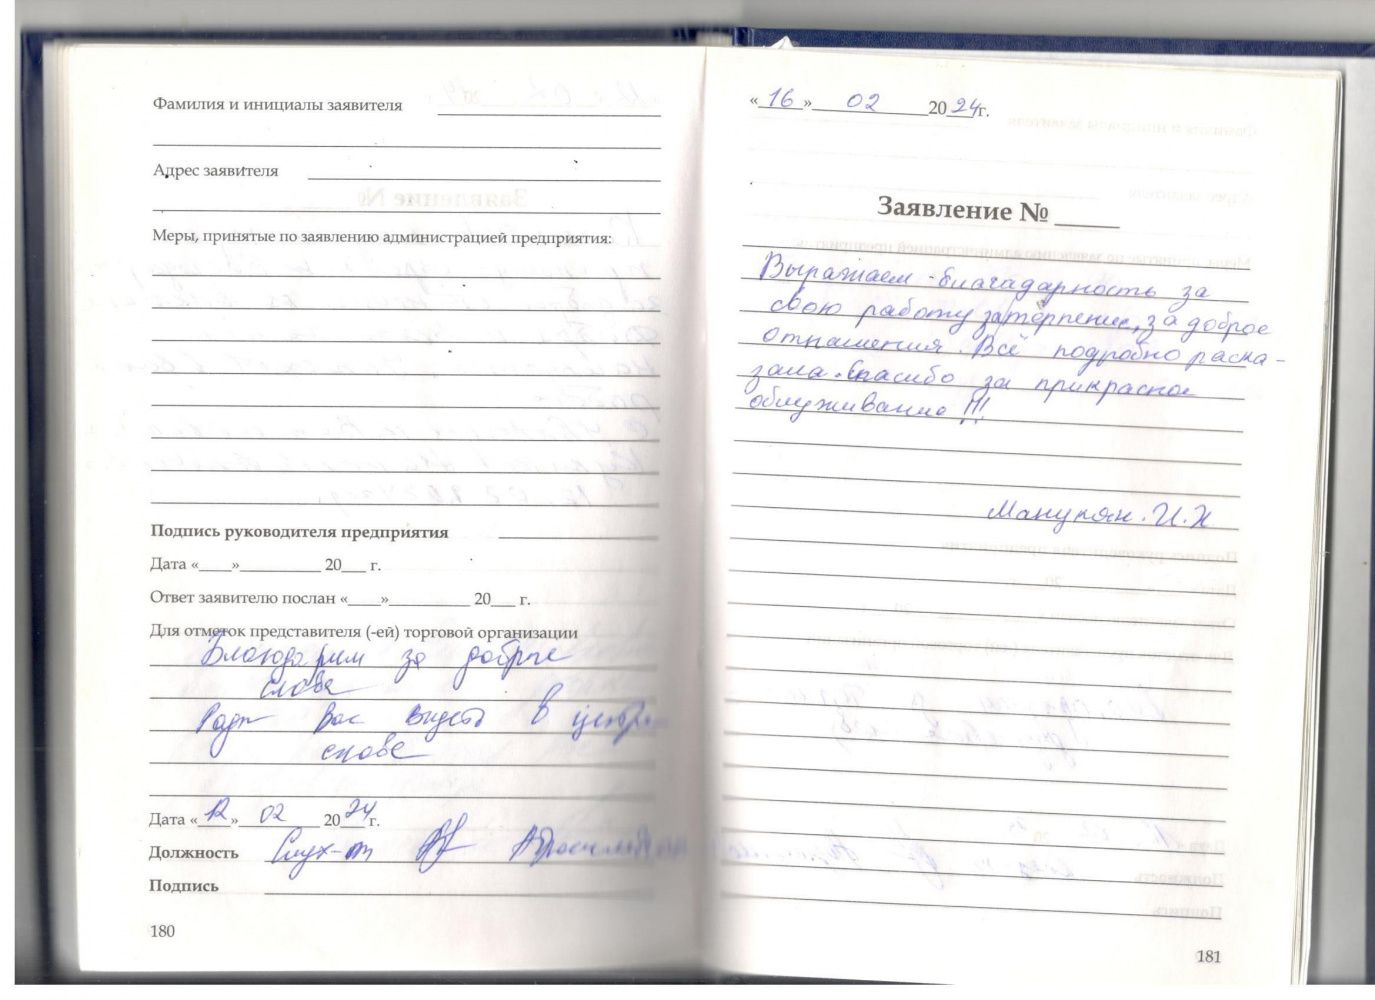 Фамилия и инициалы заявителя
Адрес заявителя
Меры, принятые по заявлению администрацией предприятия:
Подпись руководителя предприятия
Дата «____»__________ 20___ г.
Ответ заявителю послан «____»__________ 20___ г.
Для отметок представителя (-ей) торговой организации
Благодарим за добрые
слова
Рады Вас видеть в центре
снова
Дата «12» 02 2024 г.
Должность
Подпись
180
«16» 02 2024 г.
Заявление № _____
Выражаем благадарность за
свою работу за терпение, за доброе
отнашения. Всё подробно раска-
зала. Спасибо за прикрасное
облуживание !!!
Манукян. И.Х
181